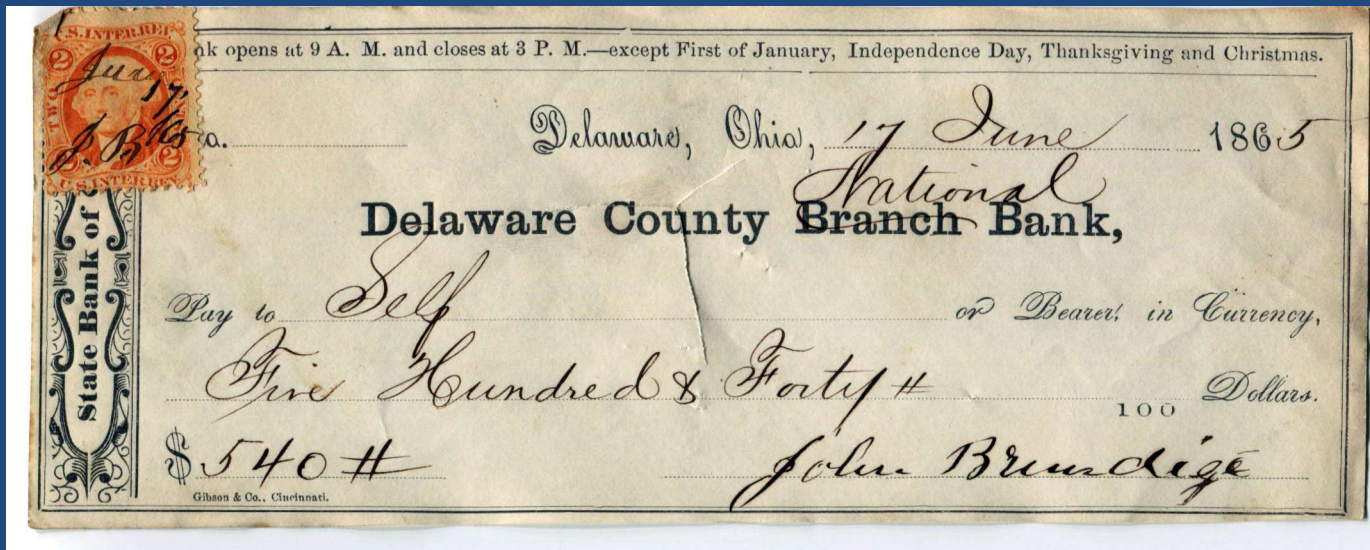 U.S. INTER. REV.
2 2
TWO
June
17/65
J. B.
2 2
U.S. INTER. REV.
nk opens at 9 A. M. and closes at 3 P. M.—except First of January, Independence Day, Thanksgiving and Christmas.
o. Delaware, Ohio, 17 June 1865
National
Delaware County Branch Bank,
State Bank of
Pay to Self or Bearer, in Currency,
Five Hundred & Forty # 100 Dollars.
$ 540 # John Brundige
Gibson & Co., Cincinnati.